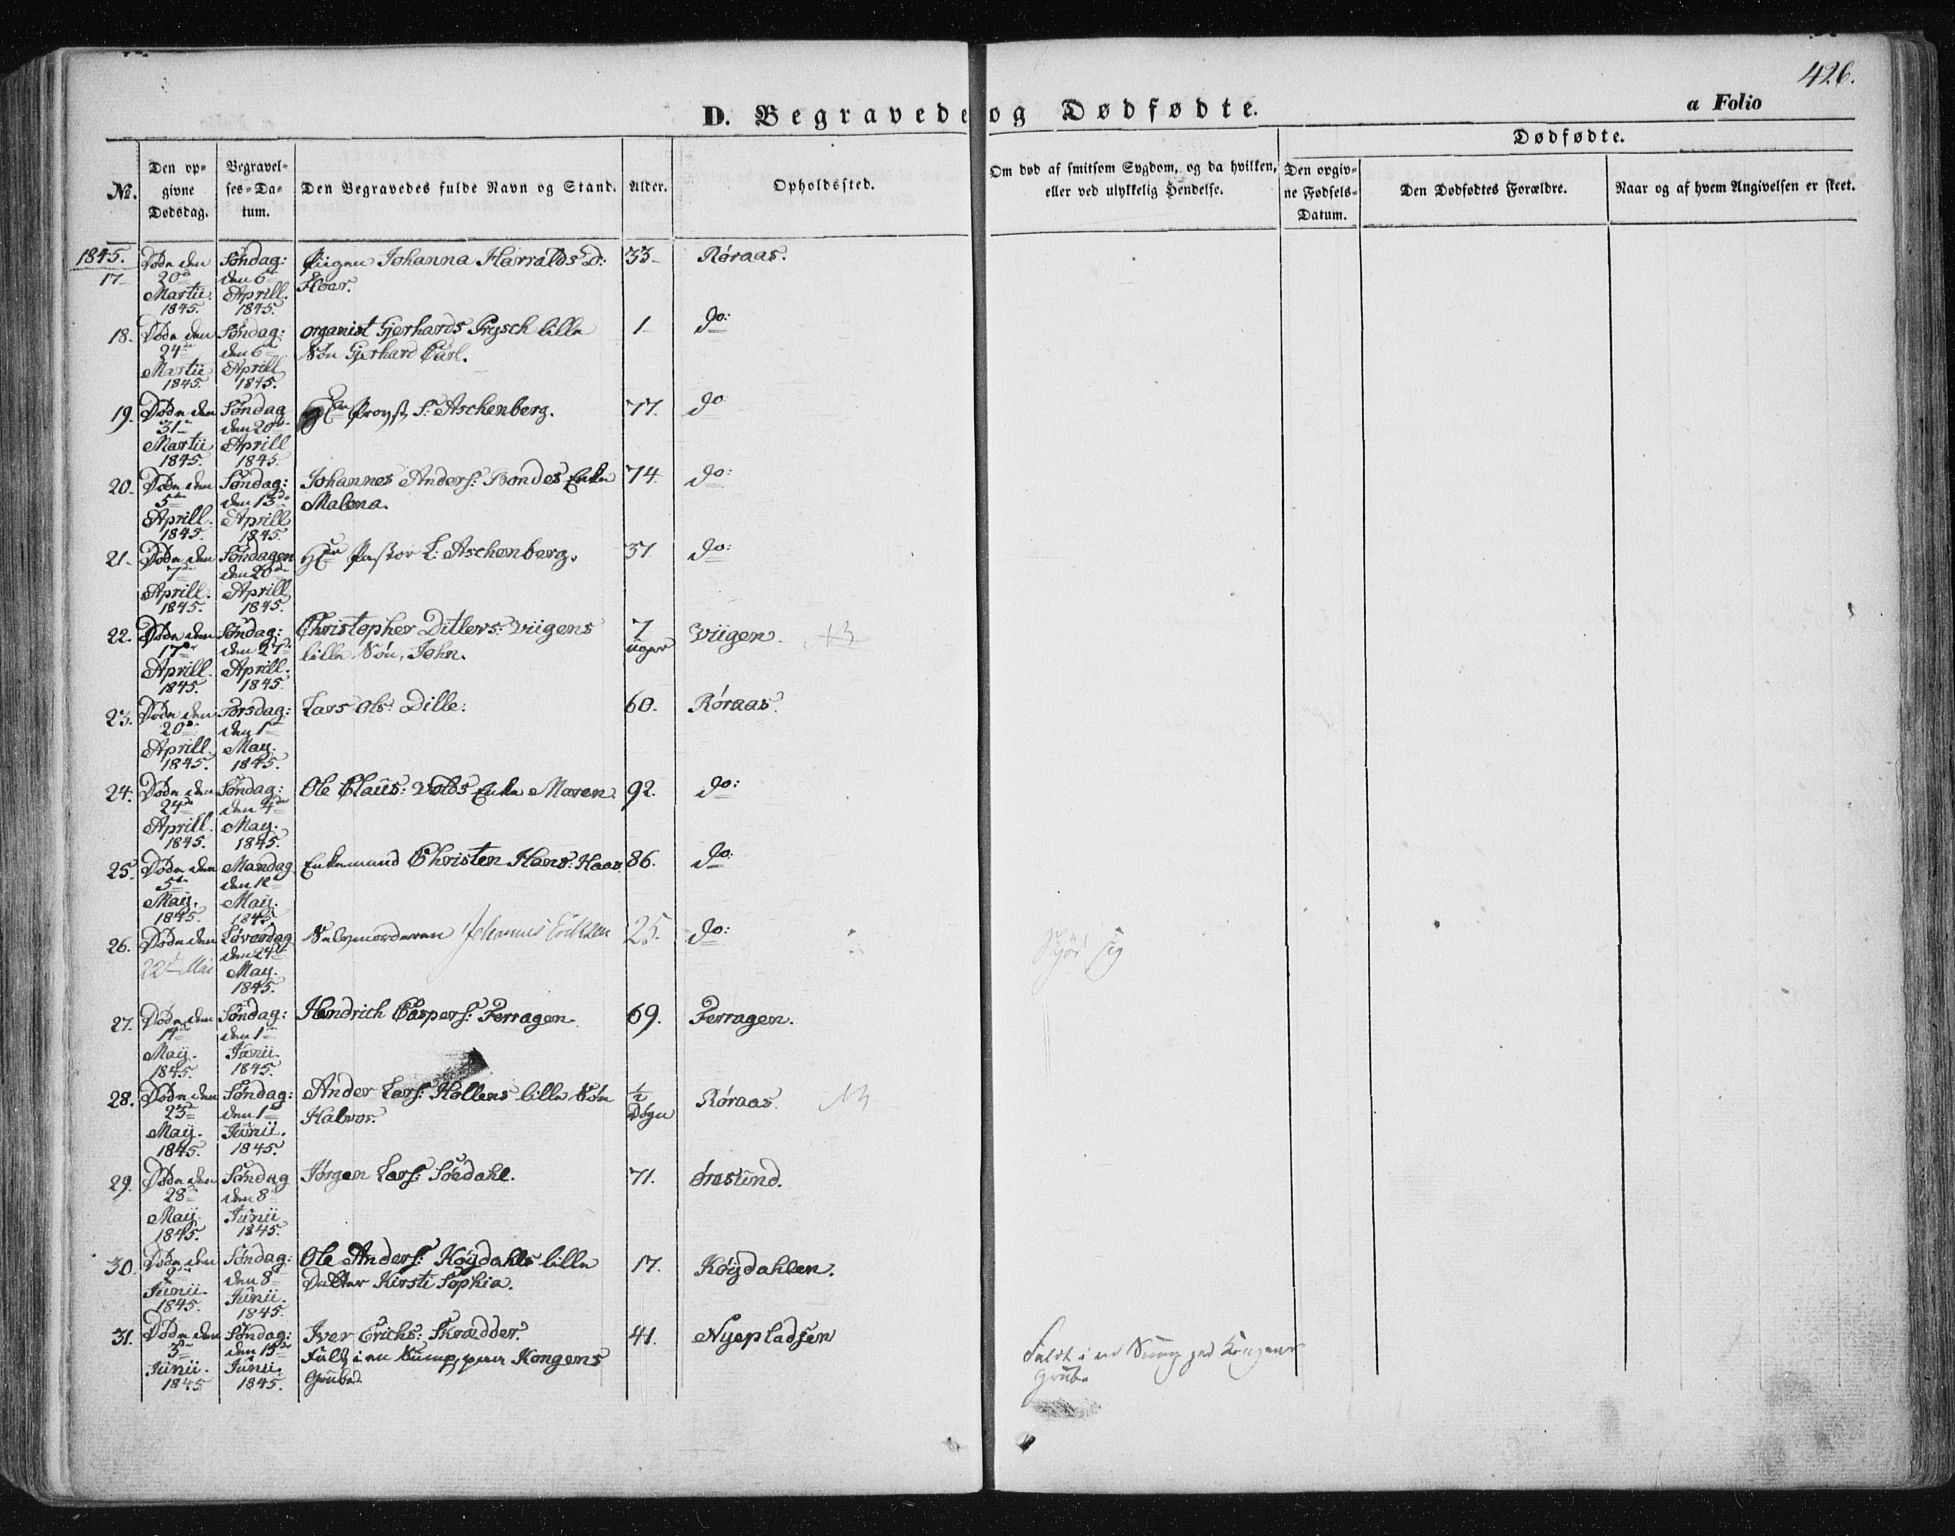 426.
D. Begravede og Dødfødte.
a Folio
Dødfødte.
№.
Den op-
givne
Dødsdag.
Begravel-
ses-Da-
tum.
Den Begravedes fulde Navn og Stand.
Alder.
Opholdssted.
Om død af smitsom Sygdom, og da hvilken,
eller ved ulykkelig Hendelse.
Den opgiv-
ne Fødsels-
Datum.
Den Dødfødtes Forældre.
Naar og af hvem Angivelsen er skeet.
1845.
17 Døde den Søndag: Piigen Johanna Harralds D: 33 Røraas.
20de den 6te Floer.
Martii Aprill.
1845. 1845.
18. Døde den Søndag: organist Gjerhards Prysch lille 1 do:
24de den 6te Søn Gjerhard Carl.
Martii Aprill
1845. 1845.
19. Døde den Søndag Hr Provst S: Aschenberg. 77. do
31te den 20de
Martii Aprill
1845. 1845.
20. Døde den Søndag: Johannes Anders: Bondes Enke 74. do:
5te den 13de Malena.
Aprill. Aprill
1845. 1845.
21. Døde den Søndagen Hr Pastor L: Aschenberg. 37 do:
7de den 20de
Aprill. Aprill
1845. 1845.
22. Døde den Søndag: Christopher Ditlevs: Viigens 7 Viigen.
17de den 27de lille Søn, John. uger
Aprill. Aprill.
1845. 1845.
23. Døde den Torsdag: Lars Ols: Dille: 60. Røraas.
20de den 1te
Aprill. May.
1845. 1845.
24. Døde den Søndag: Ole Claus: Volds Enke Maren 92. do:
24de den 4de
Aprill. May.
1845. 1845.
25. Døde den Mandag Enkemand Christen Hans: Haas 86. do:
5te den 12
May. May.
1845. 1845.
26. Døde den Løverdag Selvmorderen Johannes Eriksen 25. do: Skjød sig
22de Mai den 24de
May.
1845.
27. Døde den Søndag: Hendrich Caspers: Ferragen 69. Ferragen.
den 1te
May. Junii.
1845. 1845.
28. Døde den Søndag: Ander Lars: Kollens lille Søn ½ Røraas.
23de den 1te Halvor. Døgn
May. Junii.
1845. 1845.
29. Døde den Søndag Jørgen Lars: Søedahl. 71. Øresund.
28de den 8de
May. Junii
1845. 1845.
30. Døde den Søndag: Ole Anders: Høydahls lille 17. Høydahlen.
den 8de Datter Kirsti Sophia.
Junii. Junii.
1845. 1845.
31. Døde den Søndag: Iver Erichs: Skrædder. 41. Nyepladsen
den 15de Fald i en Sump, paa Kongens Faldt i en Sump ved Kongens
Junii Junii. Grube. Grube
1845 1845.